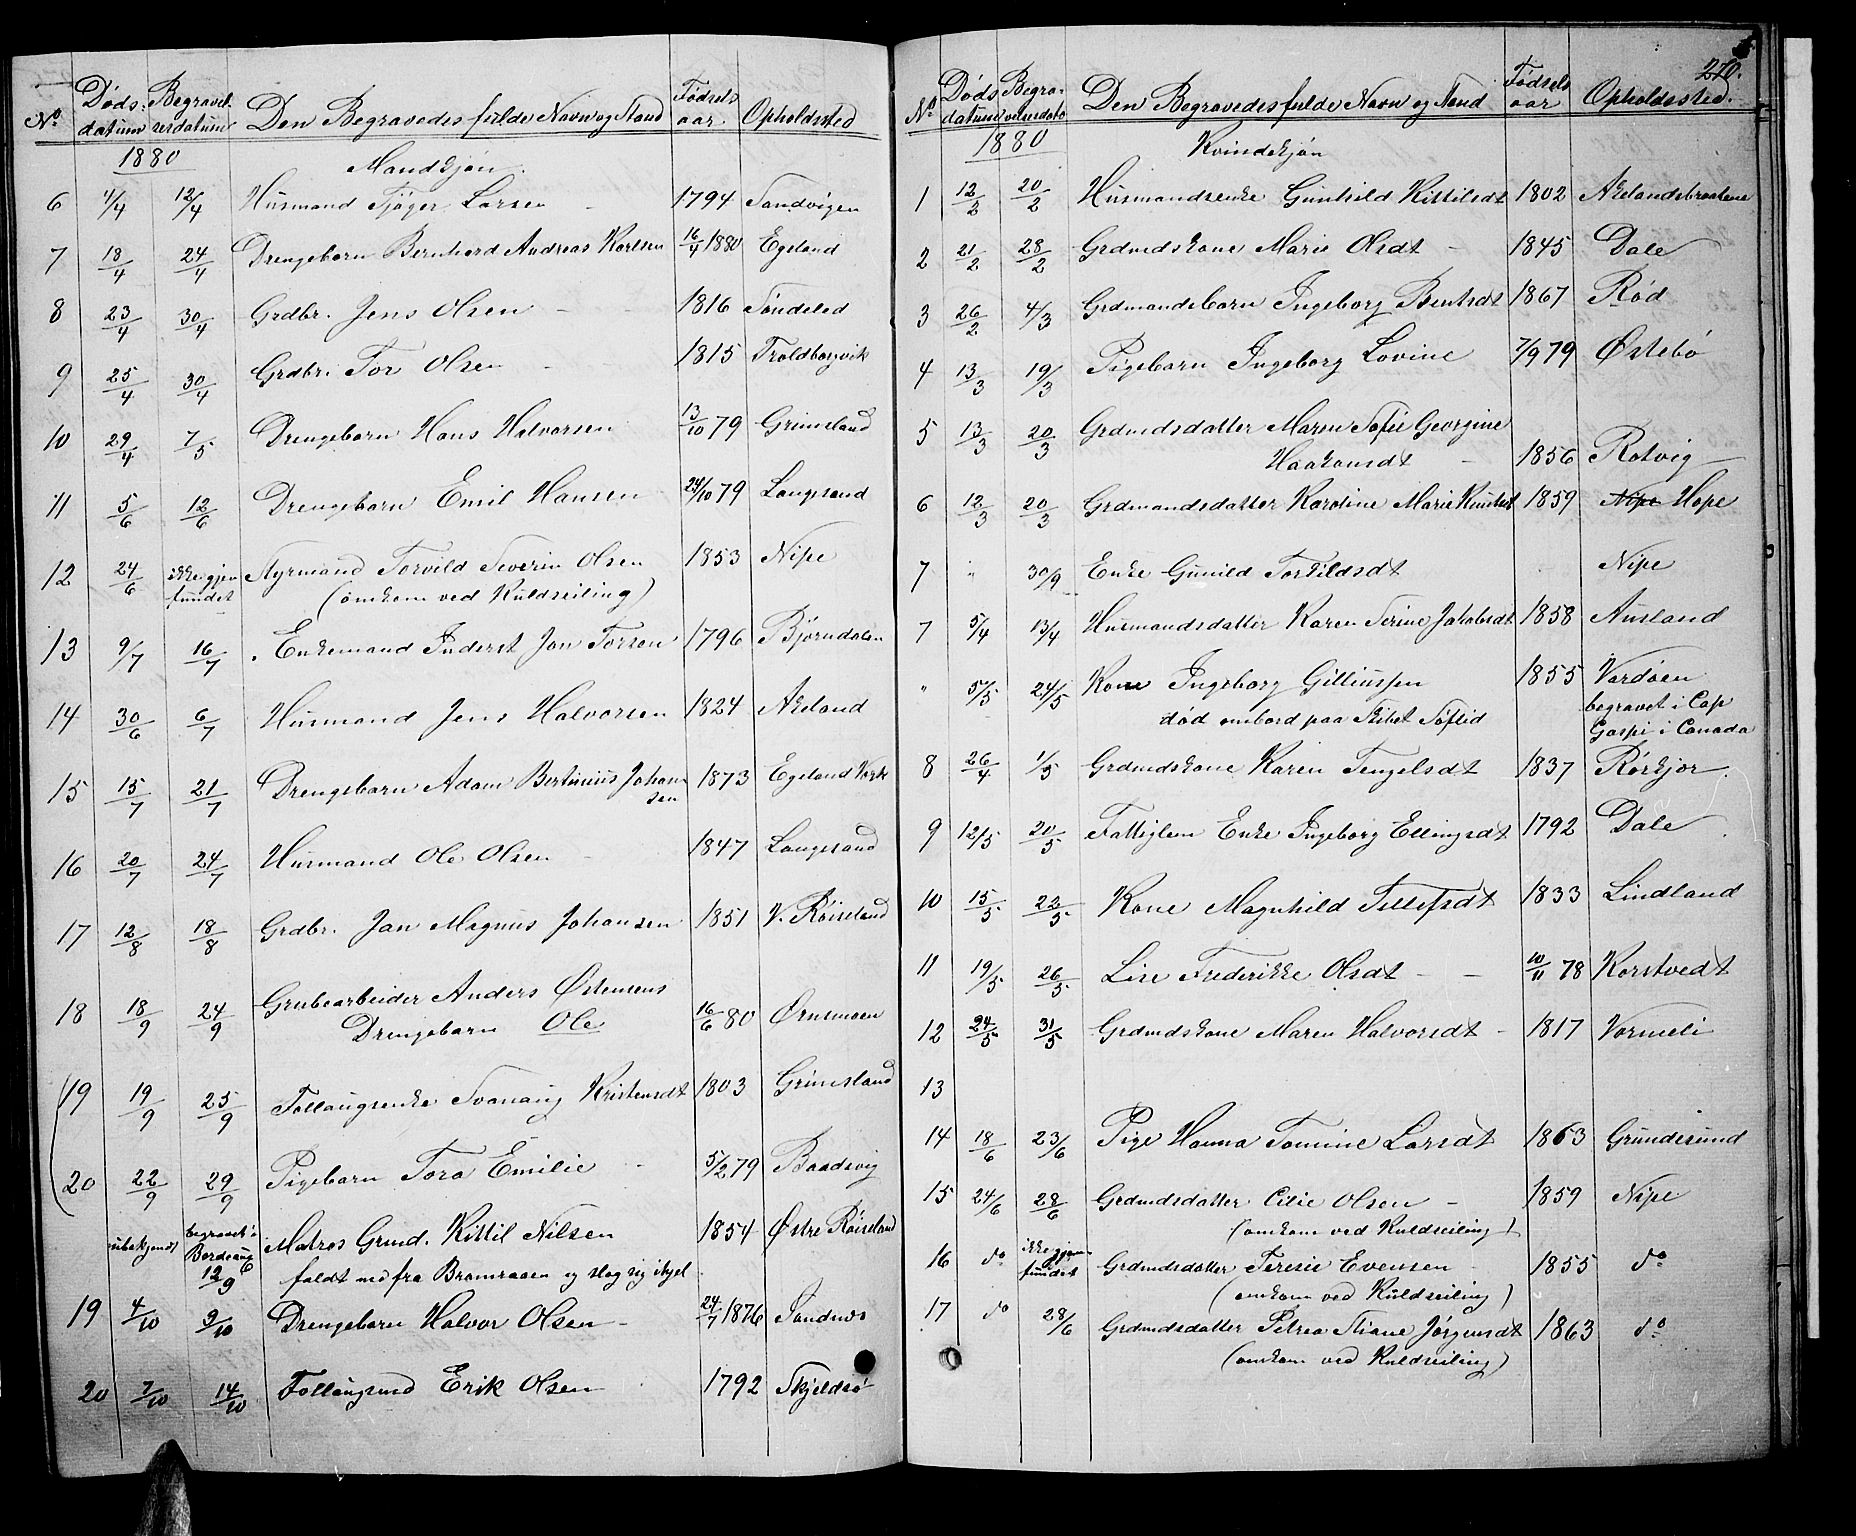 No Døds- datum Begravel- sesdatum Den Begravedes fulde Navn og Stand Fødsels aar. Opholdssted
1880 Mandkjøn.
6 4/4 12/4 Husmand Tjøger Larsen 1794 Sandvigen
7 18/4 24/4 Drengebarn Bernhard Andreas Karlsen 16/4 1880 Egeland
8 23/4 30/4 Grdbr. Jens Olsen 1816 Søndeled
9 25/4 30/4 Grdbr. Tor Olsen 1815 Troldbergvik
10 29/4 7/5 Drengebarn Hans Halvorsen 13/10 79 Grimeland
11 5/6 12/6 Drengebarn Emil Hansen 24/10 79 Langesand
12 24/6 ikke gjen- fundet Styrmand Torvild Severin Olsen 1853 Nipe
(omkom ved Kuldseiling)
13 9/7 16/7 Enkemand Inderst Jon Torson 1796 Bjørndalen
14 30/6 6/7 Husmand Jens Halvorsen 1824 Akeland
15 15/7 21/7 Drengebarn Adam Bertinius Johan- 1873 Egeland Værk
sen
16 20/7 24/7 Husmand Ole Olsen 1847 Langesand
17 12/8 18/8 Grdbr. Jan Magnus Johansen 1851 V. Røiseland
18 18/9 24/9 Grubearbeider Anders Østensens
Drengebarn Ole 16/6 80 Ørnsmoen
(19 19/9 25/9 Follaugsenke Svanaug Kristensdt 1803 Grimesland
(20 22/9 29/9 Pigebarn Tora Emilie 5/2 79 Baadsvig
ubekjendt begravet i Bordeaux 12/9 Matros Grmd. Kittil Nilsen 1854 Østre Røiseland
faldt ned fra Bramraaen og slog sig ihjel
19 4/10 9/10 Drengebarn Halvor Olsen 24/7 1876 Sandnes
20 7/10 14/10 Follaugsmd Erik Olsen 1792 Skjeldsø
270.
No Døds datum Begra- velsesdato Den Begravedes fulde Navn og Stand Fødsels aar Opholdssted.
1880 Kvindekjøn
1 12/2 20/2 Husmandsenke Gunhild Kittilsdt 1802 Akelandsbraatene
2 21/2 28/2 Grdmdskone Marie Olsdt 1845 Dale
3 26/2 4/3 Grdmandsbarn Ingeborg Bentsdt 1867 Rød
4 13/3 19/3 Pigebarn Ingeborg Lovine 7/9 79 Østebø
5 13/3 20/3 Grdmdsdatter Maren Sofie Georgine
Haakonsdt 1856 Rotvig
6 12/3 20/3 Grdmandsdatter Karoline Marie Knutsdt 1859 Nipe Hope
7 " 30/9 Enke Gunild Torkildsdt Nipe
7 5/4 13/4 Husmandsdatter Karen Serine Jakobsdt 1858 Ausland
" 5/5 24/5 Kone Ingeborg Gilliussen 1855 Vardøen
død ombord paa Skibet Søftid begravet i Cap
Gaspi i Canada
8 26/4 1/5 Grdmdskone Karen Tengelsdt 1837 Rørkjær
9 12/5 20/5 Fattiglem Enke Ingeborg Ellingsdt 1792 Dale
10 15/5 22/5 Kone Magnhild Tellefsdt 1833 Lindland
11 19/5 26/5 Lise Frederikke Olsdt 10/11 78 Korstvedt
12 24/5 31/5 Grdmdskone Maren Halvorsdt 1817 Vormeli
13
14 18/6 23/6 Pige Hanna Tomine Larsdt 1863 Grundesund
15 24/6 28/6 Grdmdsdatter Cilie Olsen 1859 Nipe
(omkom ved Kuldseiling)
16 do ikke gjen- fundet Grdmdsdatter Teresie Evensen 1855 do
(omkom ved Kuldseiling)
17 do 28/6 Grdmdsdatter Petrea Stiane Jørgensdt 1863 do
(omkom ved Kuldseiling)